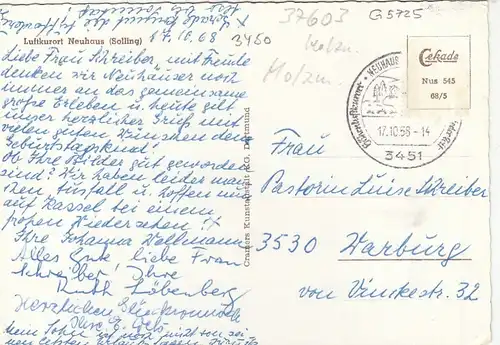 37603
G 5725
Luftkurort Neuhaus (Solling)
17.10.68
3450
Holzm.
Cekade
Nus 545
68/5
NEUHAUS
17.10.68 - 14
3451
Liebe Frau Schreiber, mit Freude
denken wir Neuhäuser noch
immer an das gemeinsame
große Erleben u. heute gilt
unser herzlicher Gruß mit
vielen guten Wünschen dem
Geburtstagskind!
Ob Ihre Bilder gut geworden
sind? Wir haben leider man-
chen Ausfall u. hoffen nun
auf Kassel bei einem
frohen Wiedersehen!
Ihre Johanna Wellmann
Alles Gute liebe Frau
Schreiber! Ihre
Ruth Löbenberg
Herzlichen Glückwunsch
Ihre
Mein Sohn ist noch nicht von sei-
Cramers Kunstanstalt KG, Dortmund
Frau
Pastorin Luise Schreiber
3530 Warburg
von Vinckestr. 32